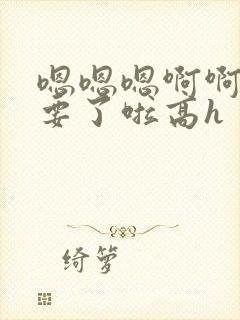 嗯嗯嗯啊啊
要了啦高h
绮萝